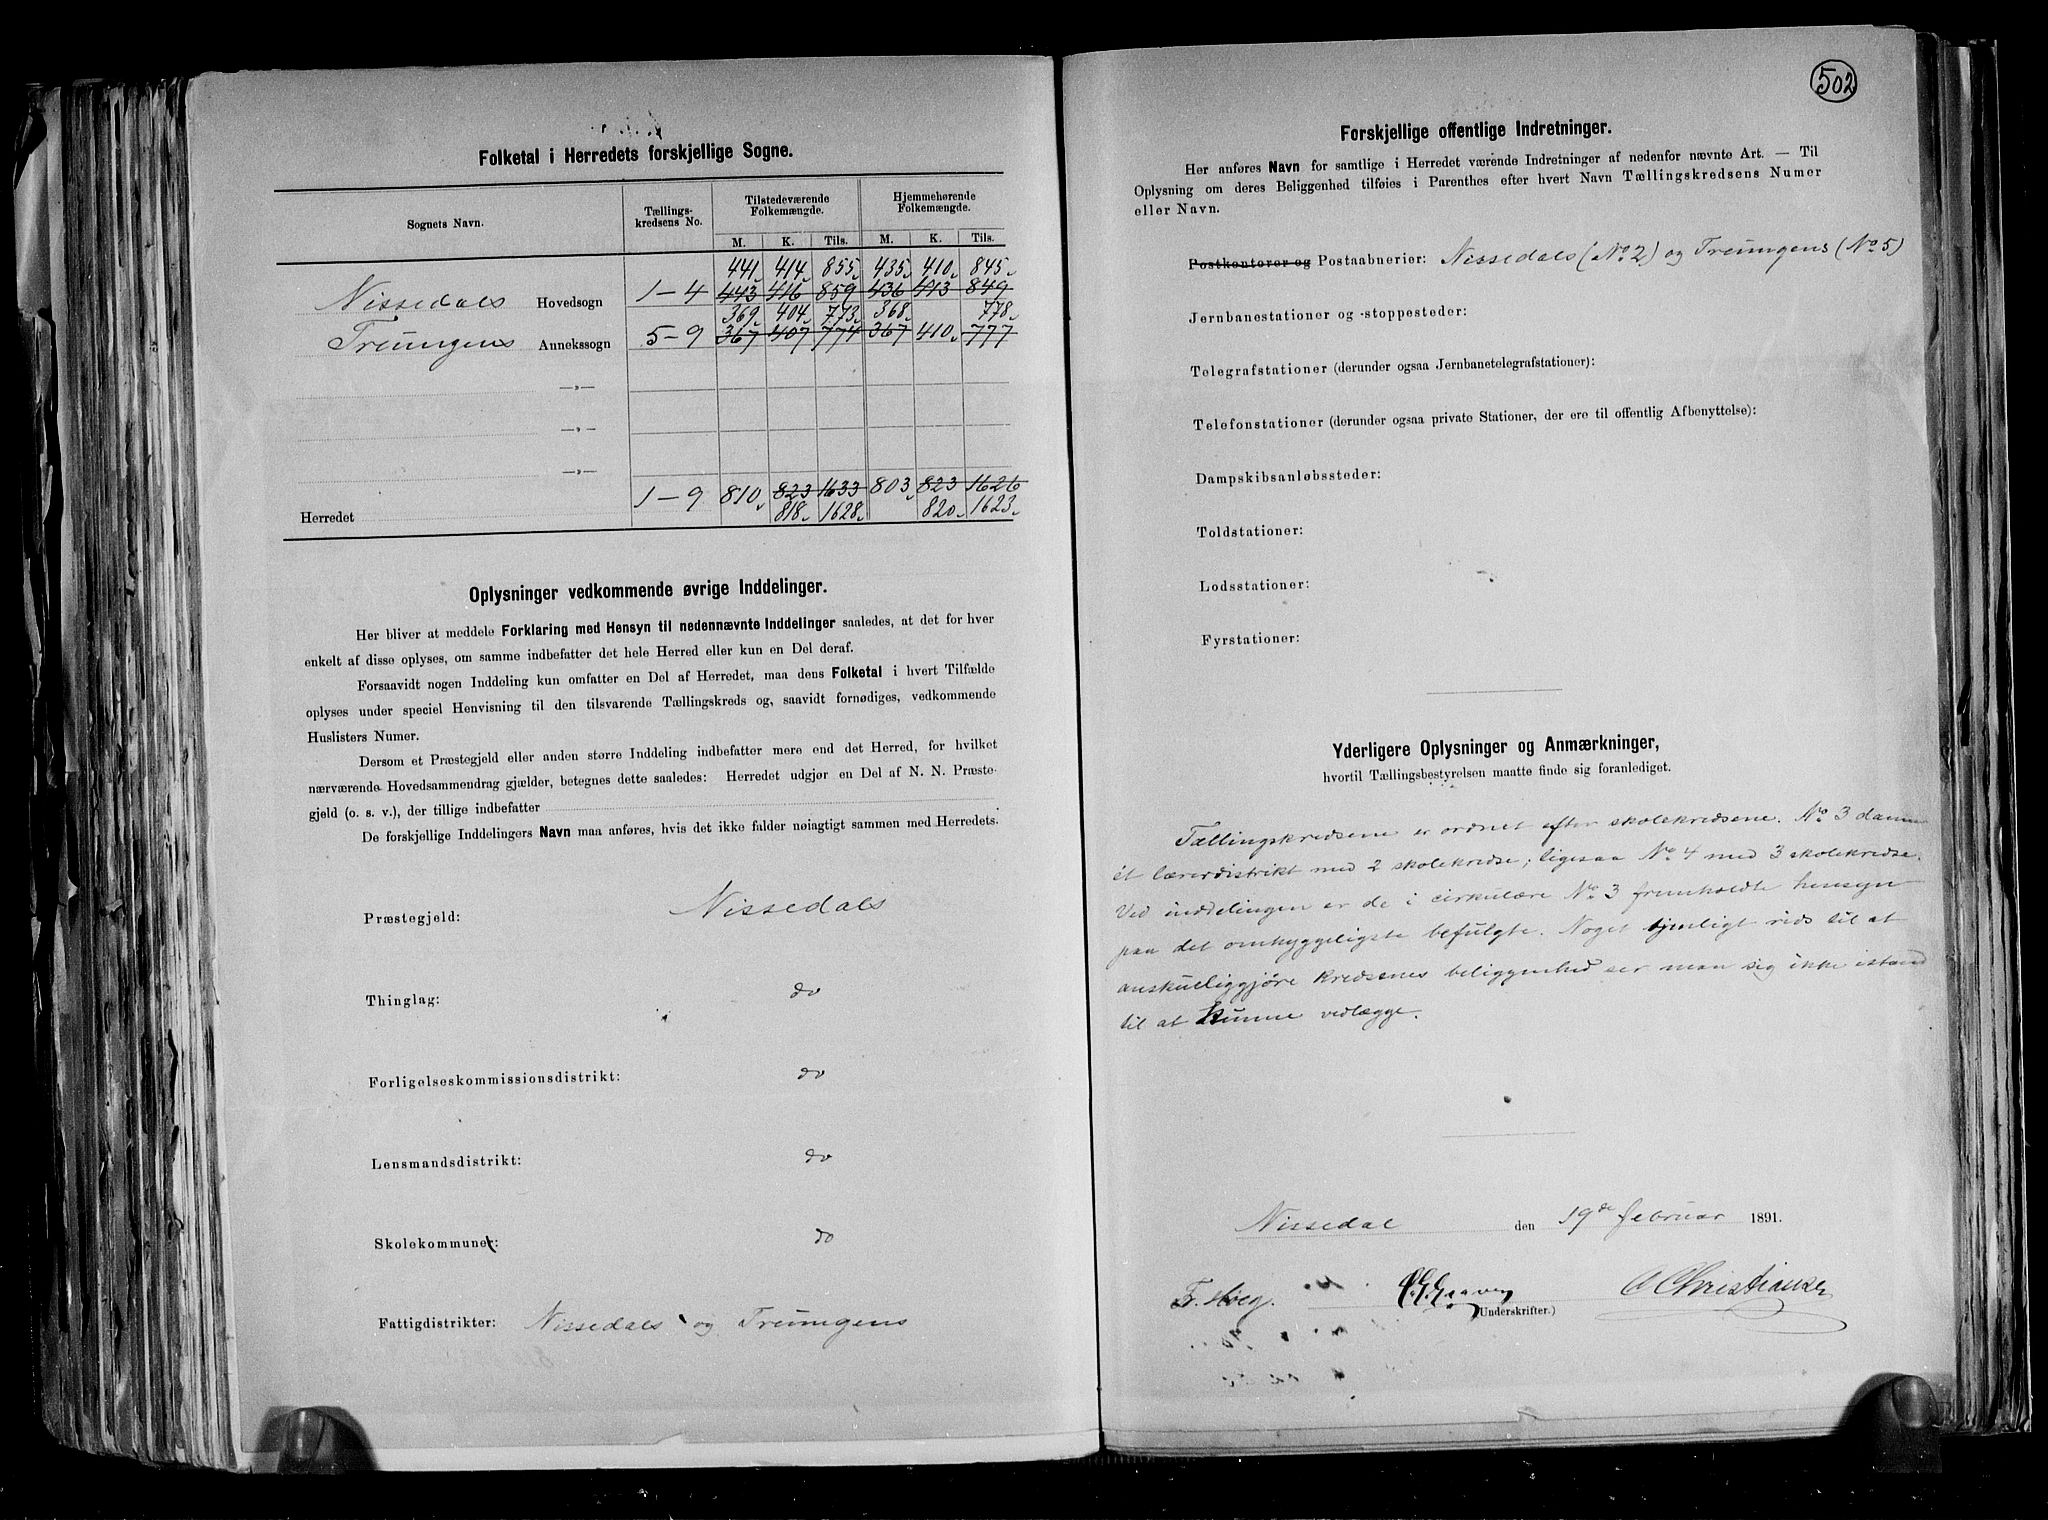 Folketal i Herredets forskjellige Sogne.
Sognets Navn.
Tællings-
kredsens No.
Tilstedeværende
Folkemængde.
Hjemmehørende
Folkemængde.
M. K. Tils. M. K. Tils.
441 414 855 435 410 845
Nissedals Hovedsogn 1-4 443 416 859 436 413 849
369 404 773 368 778
Treungens Annekssogn 5-9 367 407 774 367 410 777
—„—
—„—
—„—
1-9 810 823 1633 803 823 1626
Herredet 818 1628 820 1623
Oplysninger vedkommende øvrige Inddelinger.
Her bliver at meddele Forklaring med Hensyn til nedennævnte Inddelinger saaledes, at det for hver
enkelt af disse oplyses, om samme indbefatter det hele Herred eller kun en Del deraf.
Forsaavidt nogen Inddeling kun omfatter en Del af Herredet, maa dens Folketal i hvert Tilfælde
oplyses under speciel Henvisning til den tilsvarende Tællingskreds og, saavidt fornødiges, vedkommende
Huslisters Numer.
Dersom et Præstegjeld eller anden større Inddeling indbefatter mere end det Herred, for hvilket
nærværende Hovedsammendrag gjælder, betegnes dette saaledes: Herredet udgjør en Del af N. N. Præste-
gjeld (o. s. v.), der tillige indbefatter
De forskjellige Inddelingers Navn maa anføres, hvis det ikke falder nøiagtigt sammen med Herredets.
Præstegjeld: Nissedals
Thinglag: do
Forligelseskommissionsdistrikt: do
Lensmandsdistrikt: do
Skolekommuner: do
Fattigdistrikter: Nissedals og Treungens
502
Forskjellige offentlige Indretninger.
Her anføres Navn for samtlige i Herredet værende Indretninger af nedenfor nævnte Art. — Til
Oplysning om deres Beliggenhed tilføies i Parenthes efter hvert Navn Tællingskredsens Numer
eller Navn.
Postkontorer og Postaabnerier: Nissedals (No 2) og Treungens (No 5)
Jernbanestationer og -stoppesteder:
Telegrafstationer (derunder ogsaa Jernbanetelegrafstationer):
Telefonstationer (derunder ogsaa private Stationer, der ere til offentlig Afbenyttelse):
Dampskibsanløbssteder:
Toldstationer:
Lodsstationer:
Fyrstationer:
Yderligere Oplysninger og Anmærkninger,
hvortil Tællingsbestyrelsen maatte finde sig foranlediget.
Tællingskredsene er ordnet efter skolekredsene. No 3 danner
et lærerdistrikt med 2 skolekredse; ligesaa No 4 med 3 skolekredse.
Ved inddelingen er de i cirkulære No 3 fremholdte hensyn
paa det omhyggeligste befulgte. Noget tjenligt rids til at
anskueliggjøre kredsenes beliggenhed ser man sig ikke istand
til at kunne vedlægge.
Nissedal den 19de februar 1891.
Underskrifter.)
Christiansen